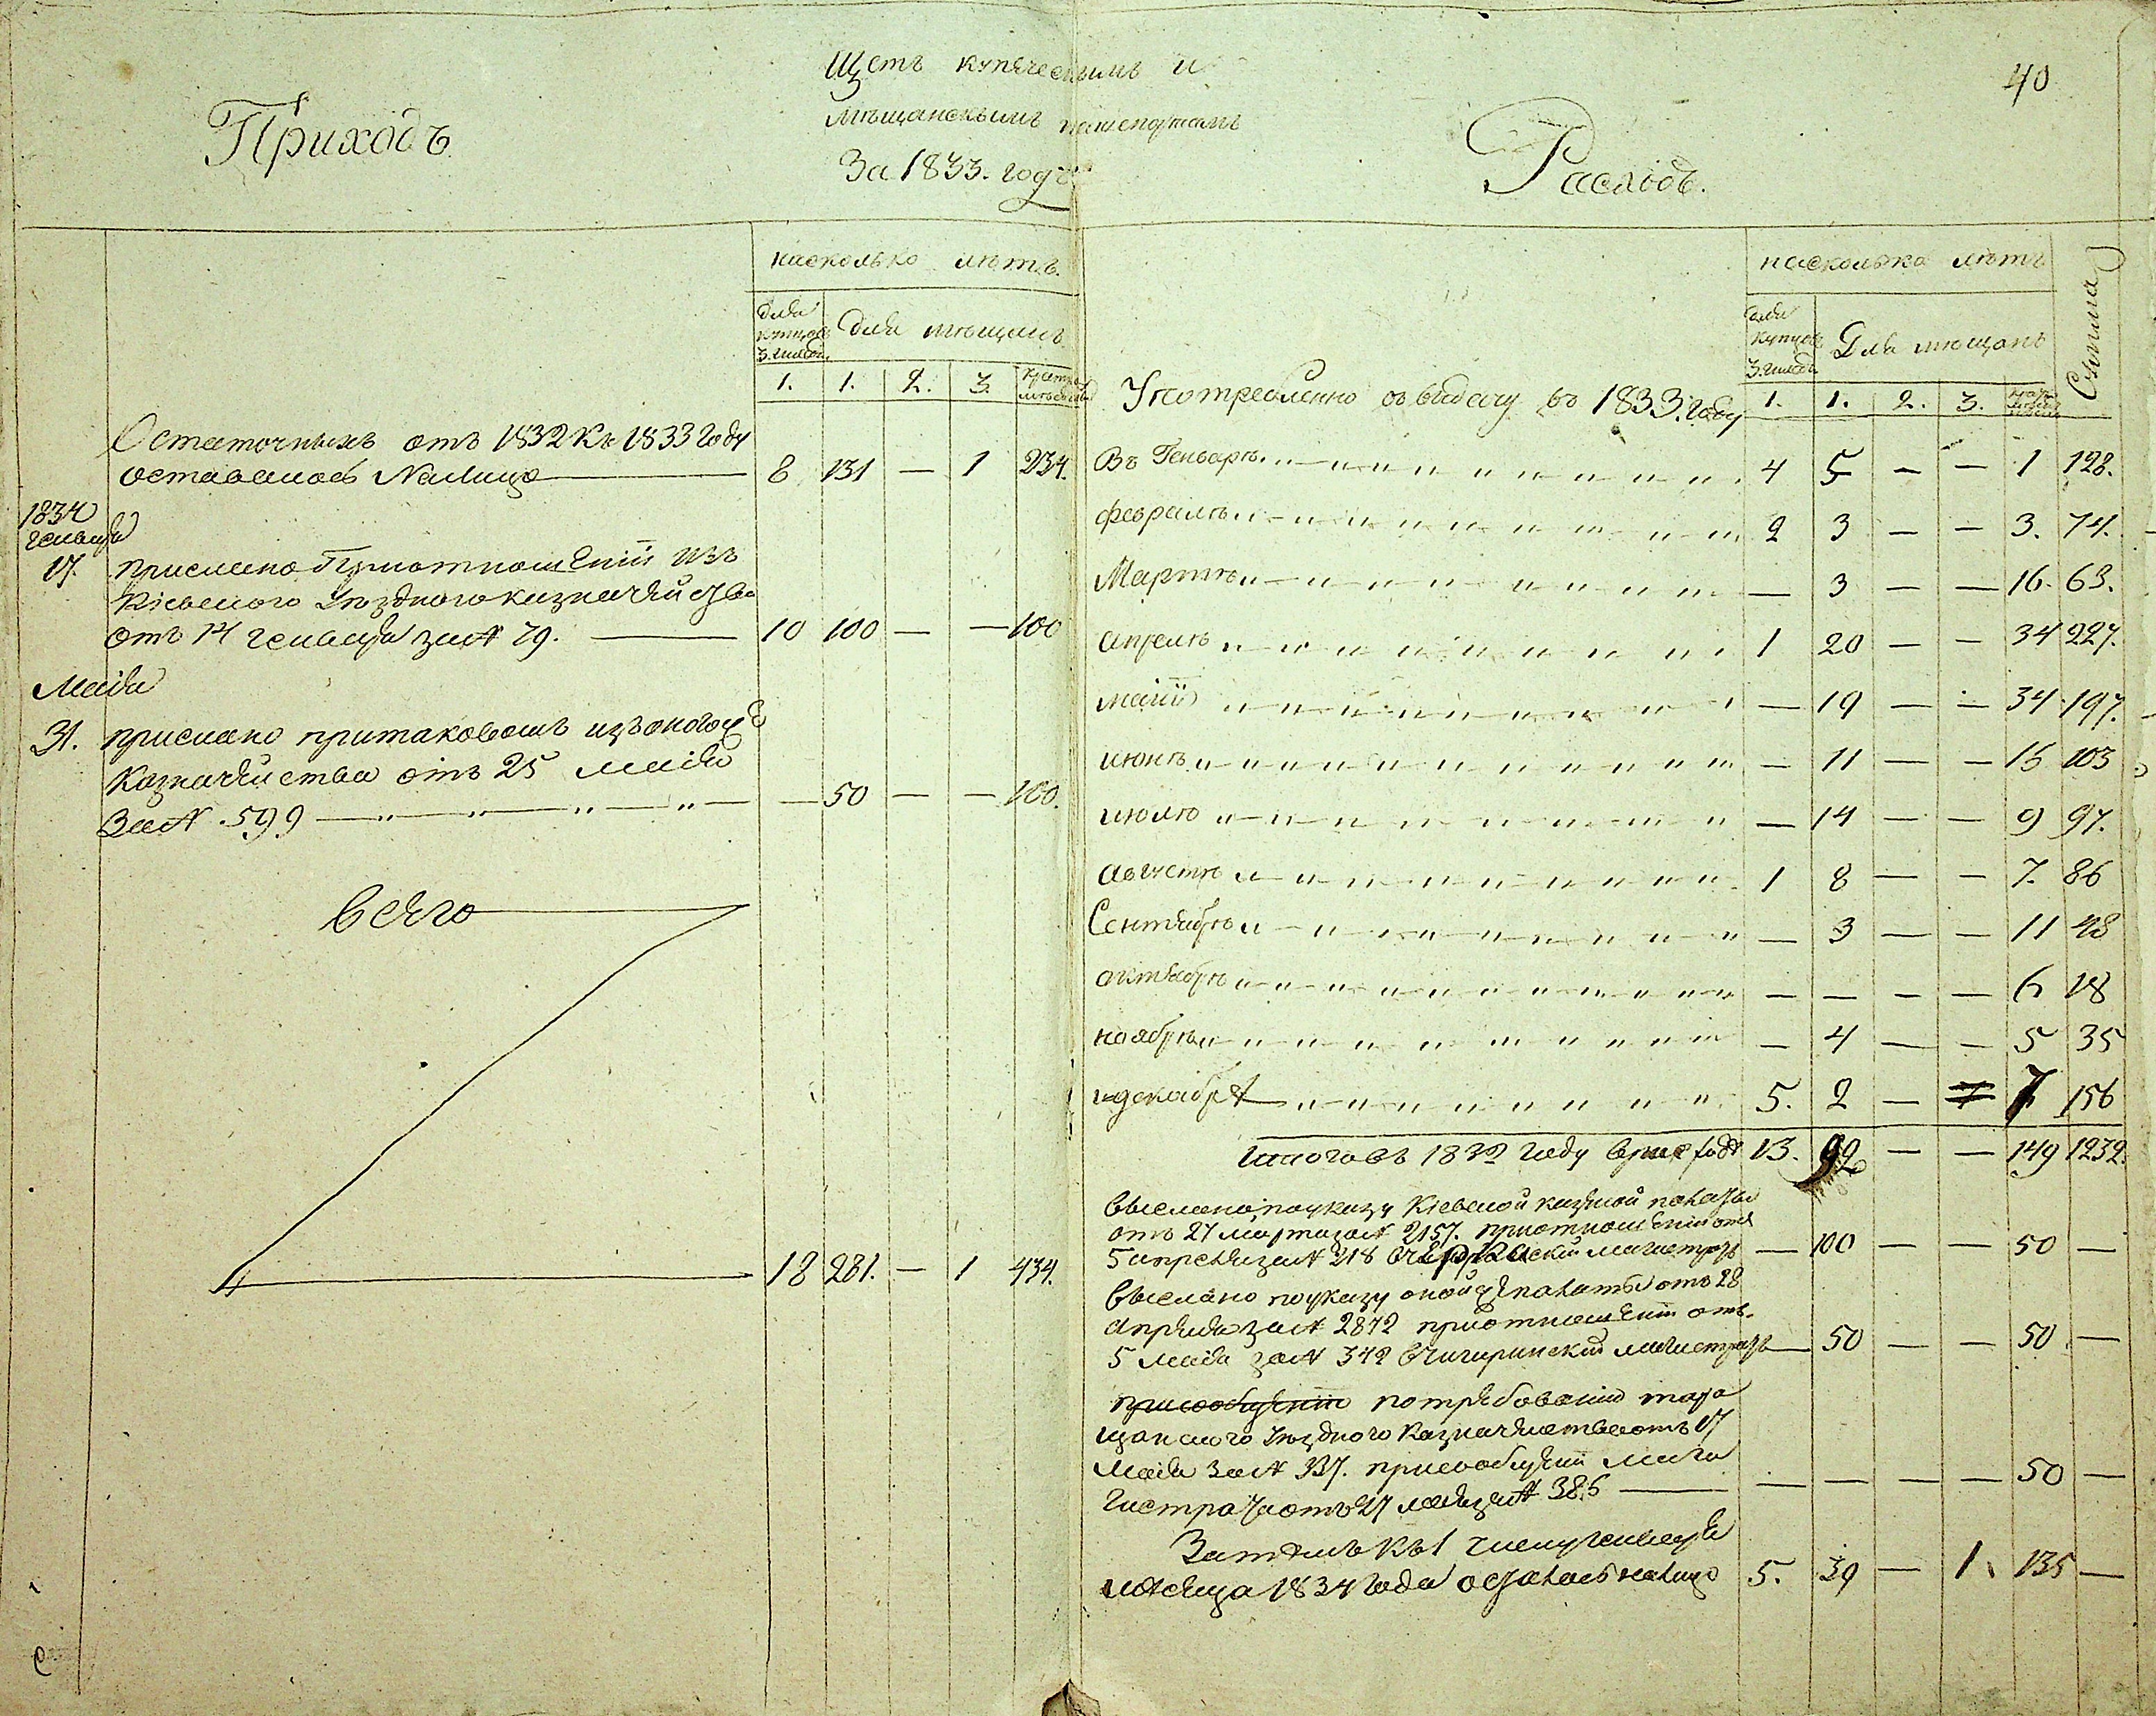 40
Щетъ купеческимъ и
мѣщанскымъ пашпортамъ
За 1833. годъ
Приходъ
насколько лѣтъ.
для купцовъ 3. гилд. Для мѣщанъ
1. 1. 2. 3.
Остаточныхъ отъ 1832 къ 1833 году
оставалось Налицо — 8 131 — 1 234.
1834
генваря
17. прислано При отношеніи изъ
Кіевского Уѣздного казначейства
отъ 14 генваря за № 79. — 10 100 — — 100
Маія
31. прислано притаковомъ изъ оногоже
Казначейства отъ 25 маія
За № 599 — — 50 — — 100.
всего
18 281. — 1 434.
Расходъ.
насколько лѣтъ Сумма
для купцовъ 3. гилд. Для мѣщанъ
1. 1. 2. 3.
Употребленно въ выдачу въ 1833. году
Въ Генварѣ 4 5 — — 1 128.
февралѣ 2 3 — — 3. 74.
Мартѣ — 3 — — 16. 63.
апрелѣ 1 20 — — 34 227.
маіи — 19 — — 34 197.
июнѣ — 11 — — 16 103
июлѣ — 14 — — 9 97.
августѣ 1 8 — — 7. 86
Сентябрѣ — 3 — — 11 48
октябрѣ — — — — 6 18
ноябрѣ — 4 — — 5 35
и декабрѣ 5. 2 — 7 156
Итого въ году 13. 92 — — 149 1232.
выслано по указу Кіевской казенной палаты
отъ 27 марта за № 2157. при отношеніи отъ
5 апреля за № 218 в Черкаскій магистратъ — 100 — — 50 —
выслано по указу оной же палаты отъ 28
апреля за № 2872 при отношеніи отъ
5 маія за № 342 в Чигиринскій магистратъ — 50 — — 50 —
присообщеніи по требованію тара
щанского Уѣздного Казначейства отъ 17
маія за № 337. присообщеніи маги
гистрата отъ 27 маія за № 386 — — — — — 50 —
Затемъ къ 1 числу генваря
месяца 1834 года осталось налицо 5. 39 — 1. 135 —